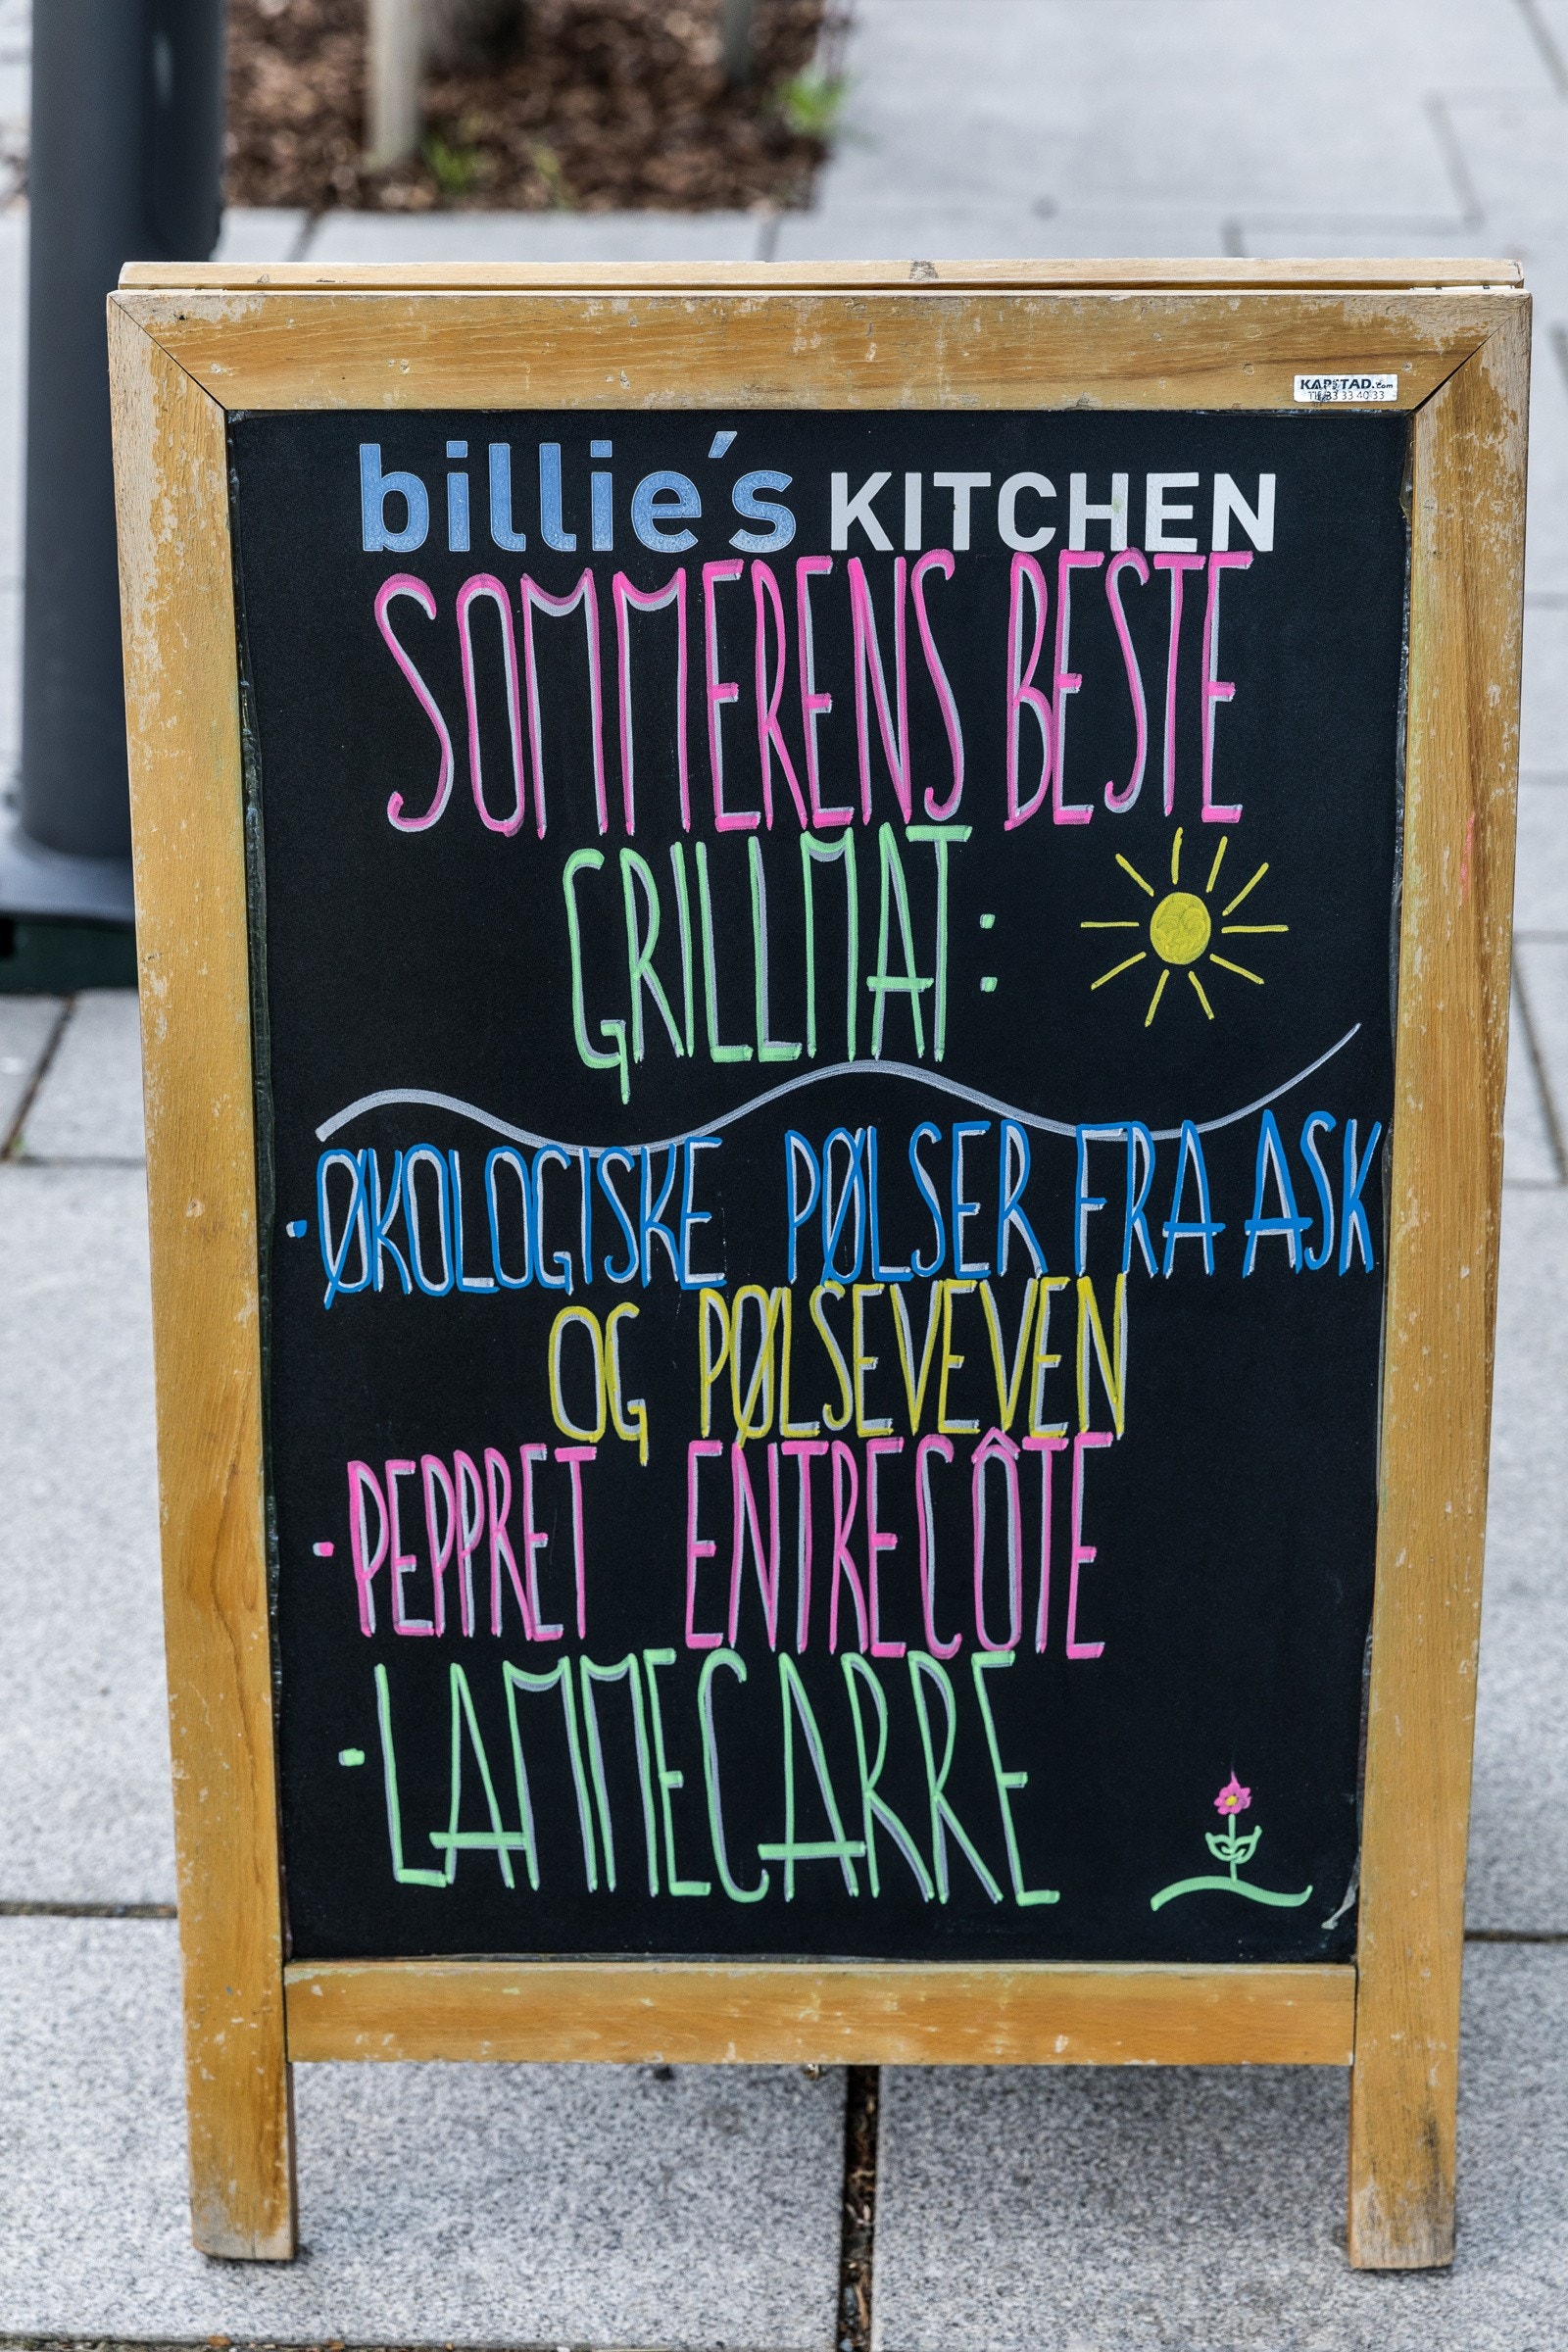 KAPSTAD.com
billie's KITCHEN
SOMMERENS BESTE
GRILLMAT:
·ØKOLOGISKE PØLSER FRA ASK
OG PØLSEVEVEN
·PEPPRET ENTRECÔTE
·LAMMECARRE